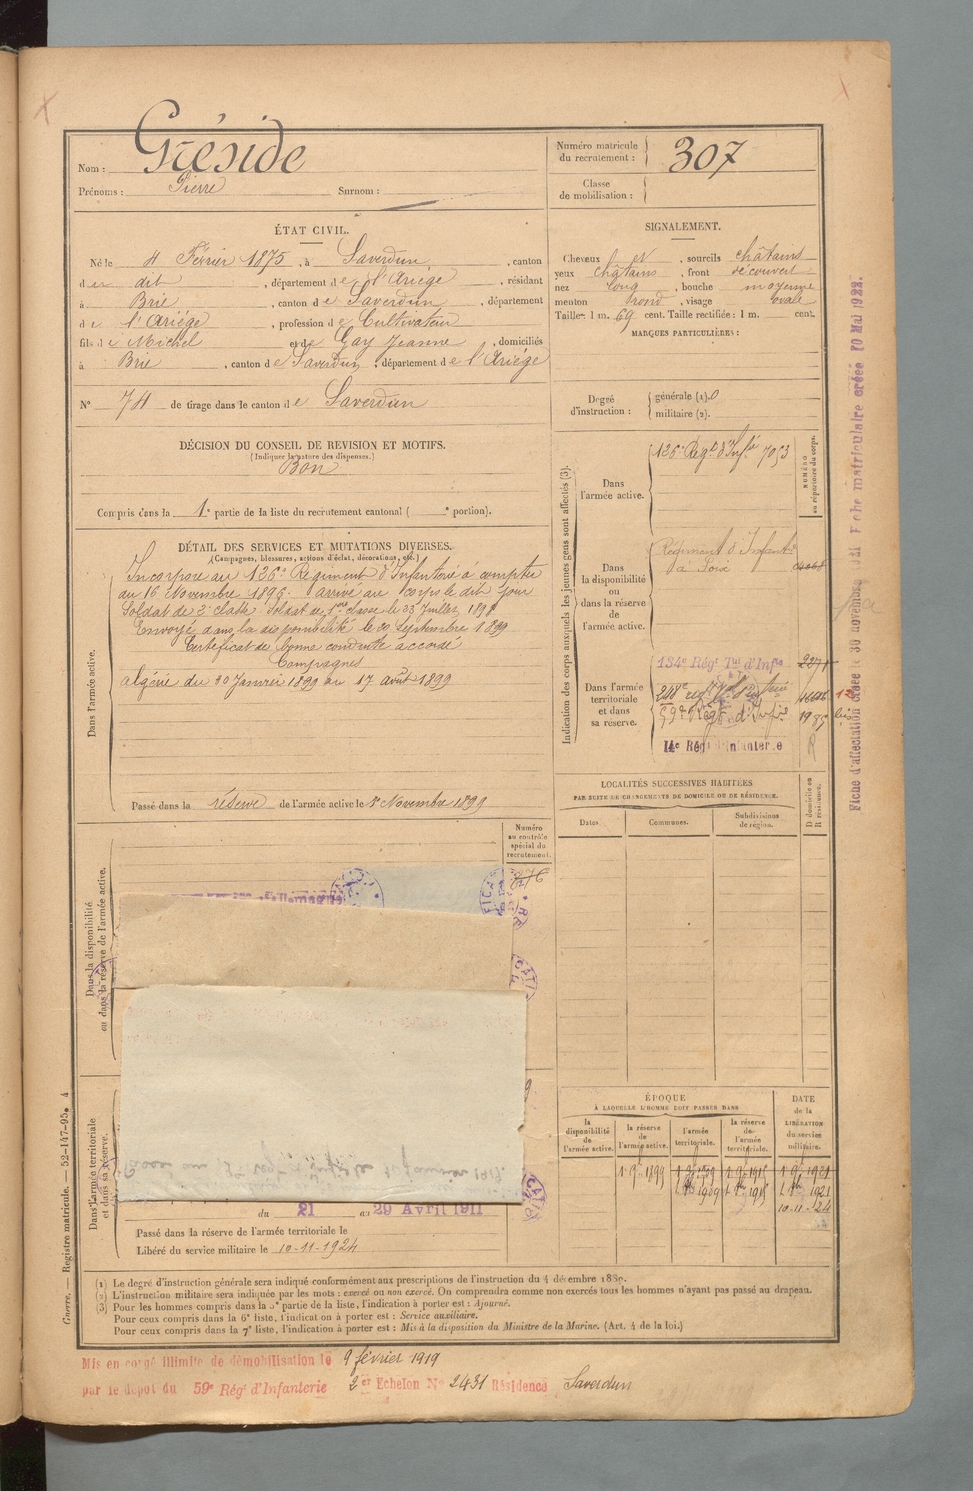 Nom : Gréside
Prénoms : Pierre Surnom :
Numéro matricule du recrutement : 307
Classe de mobilisation :
ÉTAT CIVIL.
Né le 4 Février 1875, à Saverdun, canton
du dit, département de l'Ariège, résidant
à Brie, canton de Saverdun, département
de l'Ariège, profession de Cultivateur
fils de Michel et de Gay Jeanne, domiciliés
à Brie, canton de Saverdun, département de l'Ariège
N° 74 de tirage dans le canton de Saverdun
SIGNALEMENT.
Cheveux et, sourcils châtains
yeux châtains, front découvert
nez long, bouche moyenne
menton rond, visage ovale
Taille: 1 m. 69 cent. Taille rectifiée: 1 m. cent.
MARQUES PARTICULIÈRES :
Degré d'instruction : générale (1). 0
militaire (2).
DÉCISION DU CONSEIL DE REVISION ET MOTIFS.
(Indiquer la nature des dispenses.)
Bon
Compris dans la 1e partie de la liste du recrutement cantonal ( e portion).
DÉTAIL DES SERVICES ET MUTATIONS DIVERSES.
(Campagnes, blessures, actions d'éclat, décorations, etc.)
Dans l'armée active.
Incorporé au 126e Régiment d'Infanterie à compter
du 16 Novembre 1896. Arrivé au corps le dit jour
Soldat de 2e classe. Soldat de 1ère classe le 23 Juillet 1898
Envoyé dans la disponibilité le 20 Septembre 1899
Certificat de bonne conduite accordé
Campagnes
Algérie du 30 Janvier 1899 au 17 août 1899
Passé dans la réserve de l'armée active le 1er Novembre 1899
Indication des corps auxquels les jeunes gens sont affectés (3).
NUMÉRO au répertoire du corps.
Dans l'armée active.
126e Régt d'Infie 7053
Dans la disponibilité ou dans la réserve de l'armée active.
Régiment d'Infantie
à Foix
Dans l'armée territoriale et dans sa réserve.
134e Régt Tal d'Infie
59e Régt d'Infie 1985
14e Régt d'Infanterie
R
LOCALITÉS SUCCESSIVES HABITÉES
PAR SUITE DE CHANGEMENTS DE DOMICILE OU DE RÉSIDENCE.
Dates. Communes. Subdivisions de région. D domicile ou R résidence.
Numéro au contrôle spécial du recrutement.
276
Dans la disponibilité ou dans la réserve de l'armée active.
Allemagne
Dans l'armée territoriale et dans sa réserve.
du 21 au 29 Avril 1911
Passé dans la réserve de l'armée territoriale le
Libéré du service militaire le 10-11-1924
ÉPOQUE
À LAQUELLE L'HOMME DOIT PASSER DANS
DATE de la LIBÉRATION du service militaire.
la disponibilité de l'armée active. la réserve de l'armée active. l'armée territoriale. la réserve de l'armée territoriale.
1 9bre 1899 1 9bre 1909 1 9bre 1915 1 9bre 1921
10-11-24
(1) Le degré d'instruction générale sera indiqué conformément aux prescriptions de l'instruction du 4 décembre 1889.
(2) L'instruction militaire sera indiquée par les mots : exercé ou non exercé. On comprendra comme non exercés tous les hommes n'ayant pas passé au drapeau.
(3) Pour les hommes compris dans la 5e partie de la liste, l'indication à porter est : Ajourné.
Pour ceux compris dans la 6e liste, l'indication à porter est : Service auxiliaire.
Pour ceux compris dans la 7e liste, l'indication à porter est : Mis à la disposition du Ministre de la Marine. (Art. 4 de la loi.)
Mis en congé illimité de démobilisation le 9 février 1919
par le dépôt du 59e Régt d'Infanterie 2er Echelon N° 2431 Résidence Saverdun
Guerre. — Registre matricule. — 52-147-95. 4
Fiche matriculaire créée 10 Mai 1922.
Fiche d'affectation créée le 30 novembre 1921